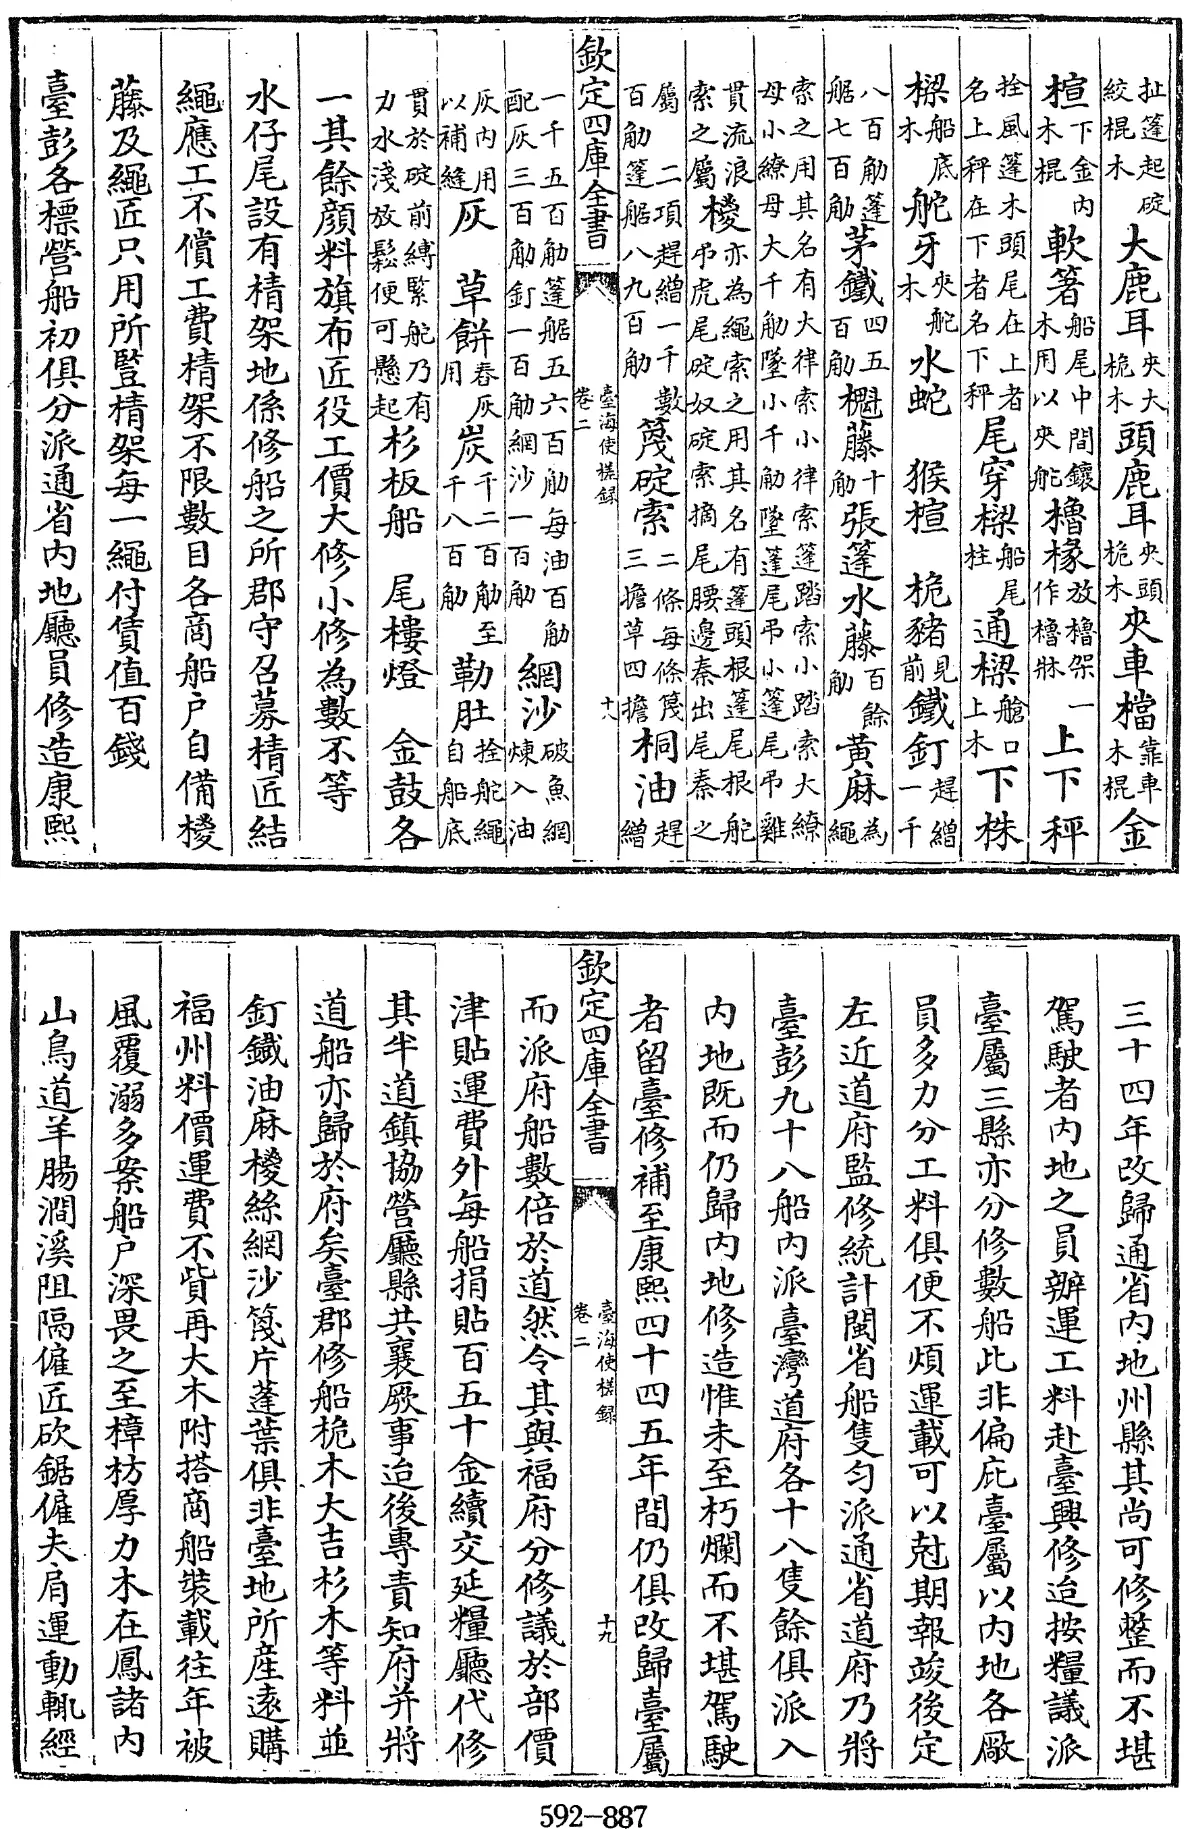 扯篷起碇絞棍木大鹿耳夾大桅木頭鹿耳夾頭桅木夾車檔靠車木棍金
楦下金內木棍軟箸船尾中間鑲木用以夾舵櫓椽放櫓架一作櫓牀上下秤
拴風篷木頭尾在上者名上秤在下者名下秤尾穿樑船尾柱通樑艙口上木下株
樑船底木舵牙夾舵木水蛇 猴楦 桅豬見前鐵釘趕繒一千
八百觔篷艍七百觔茅鐵四五百觔櫆藤十觔張篷水藤百餘觔黃麻為繩
索之用其名有大律索小律索篷踏索小踏索大繚母小繚母大千觔墜小千觔墜篷尾吊小篷尾吊雞
貫流浪索之屬椶亦為繩索之用其名有篷頭根篷尾根舵吊虎尾碇奴碇索摘尾腰邊秦出尾秦之
屬 二項趕繒一千數百觔篷艍八九百觔篾碇索二條每條篾三擔草四擔桐油趕繒
欽定四庫全書 臺海使槎録 卷二 十八
一千五百觔篷艍五六百觔每油百觔配灰三百觔釘一百觔網沙一百觔網沙破魚網煉入油
灰內用以補縫灰 草餅舂灰用炭千二百觔至千八百觔勒肚拴舵繩自船底
貫於碇前縛緊舵乃有力水淺放鬆便可懸起杉板船 尾樓燈 金鼓各
一其餘顔料旗布匠役工價大修小修為數不等
水仔尾設有棈架地係修船之所郡守召募棈匠結
繩應工不償工費棈架不限數目各商船户自備椶
藤及繩匠只用所豎棈架每一繩付賃值百錢
臺彭各標營船初俱分派通省內地廳員修造康熙
三十四年改歸通省內地州縣其尚可修整而不堪
駕駛者內地之員辦運工料赴臺興修迨按糧議派
臺屬三縣亦分修數船此非偏庇臺屬以內地各廠
員多力分工料俱便不煩運載可以尅期報竣後定
左近道府監修統計閩省船隻匀派通省道府乃將
臺彭九十八船內派臺灣道府各十八隻餘俱派入
內地既而仍歸內地修造惟未至朽爛而不堪駕駛
者留臺修補至康熙四十四五年間仍俱改歸臺屬
欽定四庫全書 臺海使槎録 卷二 十九
而派府船數倍於道然令其與福府分修議於部價
津貼運費外每船捐貼百五十金續交延糧廳代修
其半道鎮協營廳縣共襄厥事迨後專責知府并將
道船亦歸於府矣臺郡修船桅木大吉杉木等料並
釘鐵油麻椶絲網沙篾片蓬葉俱非臺地所産遠購
福州料價運費不貲再大木附搭商船裝載往年被
風覆溺多案船户深畏之至樟枋厚力木在鳳諸內
山鳥道羊腸澗溪阻隔僱匠砍鋸僱夫肩運動輒經
592-887